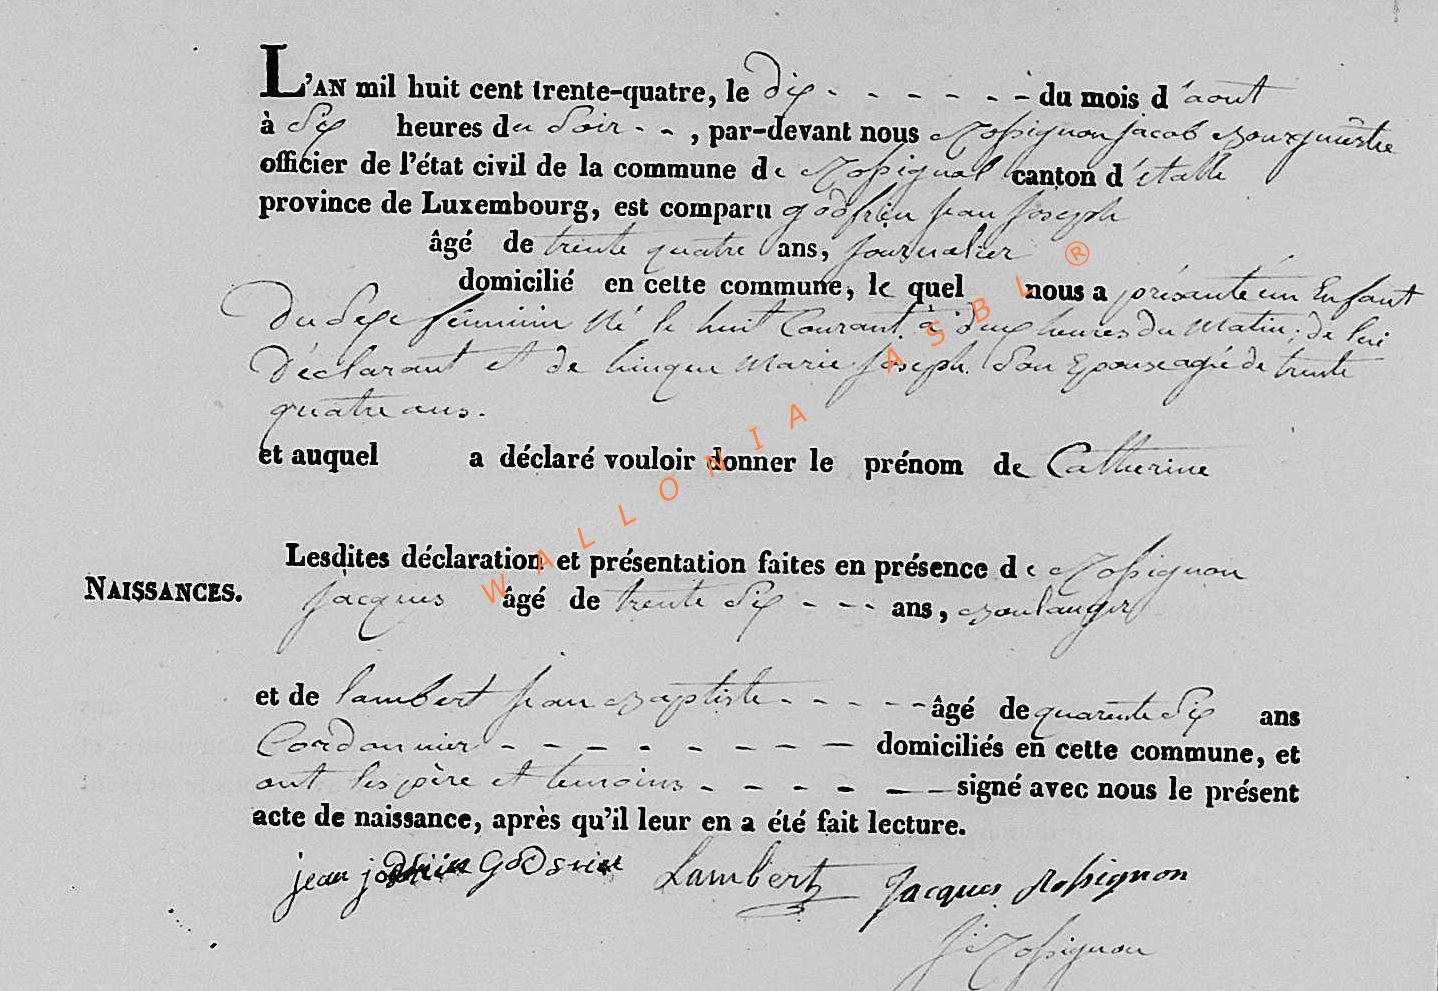 L'AN mil huit cent trente-quatre, le dix - - - - - - du mois d'aout
à Six heures du Soir - - , par-devant nous Rossignon jacob Bourgmestre
officier de l'état civil de la commune de Rossignol canton d'étalle
province de Luxembourg, est comparu godfrin jean joseph
âgé de trente quatre ans, journalier
domicilié en cette commune, le quel nous a présenté un Enfant
Du Sexe féminin Né le huit Courant à deux heures du Matin; de lui
Déclarant et de hinque Marie joseph. Son Epouse agée de trente
quatre ans.
et auquel a déclaré vouloir donner le prénom de Catherine
Lesdites déclaration et présentation faites en présence de Rossignon
NAISSANCES.
jacques âgé de trente Six - - - ans, Boulanger
et de lambert jean Baptiste - - - - - âgé de quarente Six ans
Cordonnier - - - - - - - - domiciliés en cette commune, et
ont les père et temoins - - - - - - signé avec nous le présent
acte de naissance, après qu'il leur en a été fait lecture.
jean Lambert jacques Rossignon
j Rossignon
WALLONIA ASBL ®